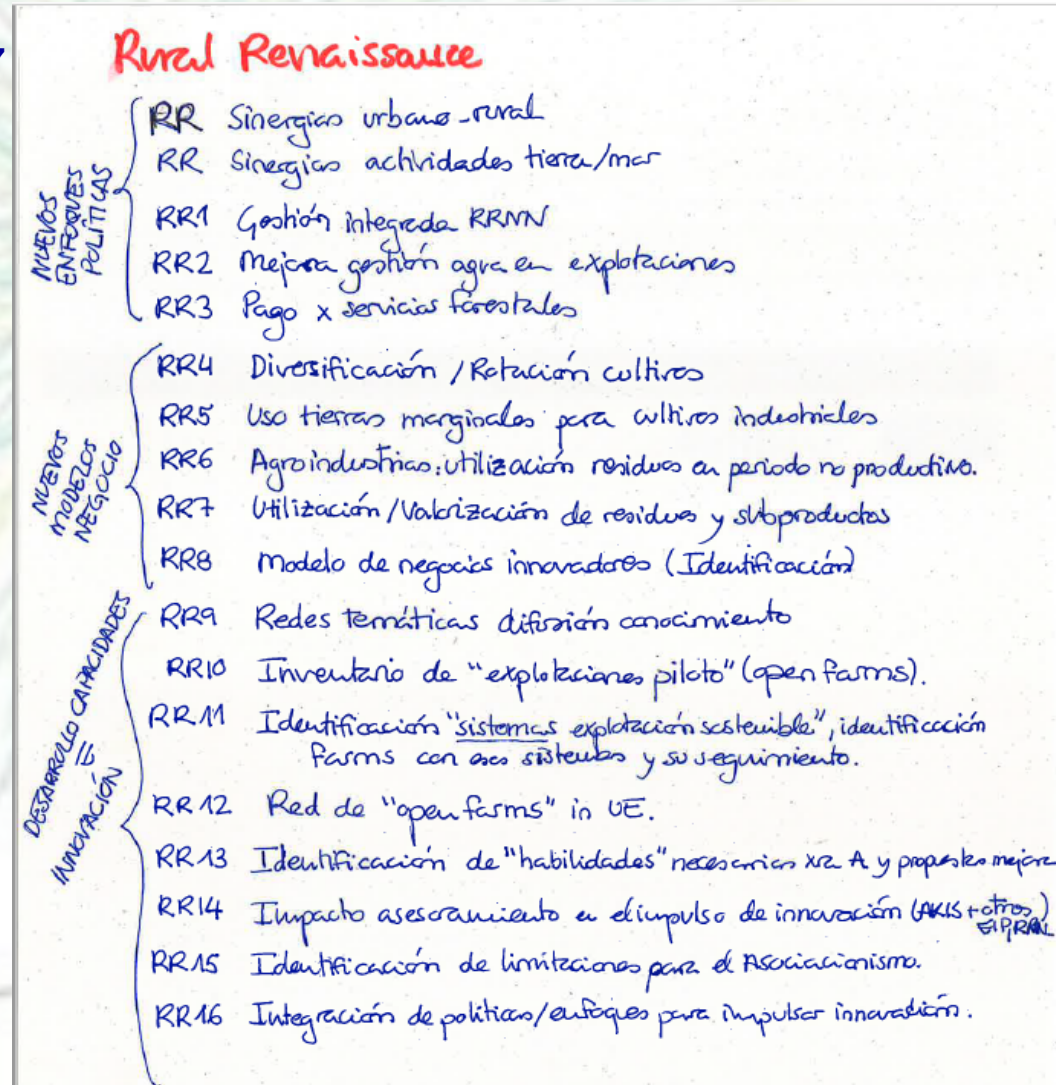 Rural Renaissance
NUEVOS
ENFOQUES
POLÍTICAS
RR Sinergias urbano-rural
RR Sinergias actividades tierra/mar
RR1 Gestión integrada RRNN
RR2 Mejora gestión agua en explotaciones
RR3 Pago x servicios forestales
NUEVOS
MODELOS
NEGOCIO
RR4 Diversificación / Rotación cultivos
RR5 Uso tierras marginales para cultivos industriales
RR6 Agroindustrias: utilización residuos en periodo no productivo.
RR7 Utilización/Valorización de residuos y subproductos
RR8 Modelo de negocios innovadores (Identificación)
DESARROLLO CAPACIDADES
=
INNOVACIÓN
RR9 Redes temáticas difusión conocimiento
RR10 Inventario de "explotaciones piloto" (open farms).
RR11 Identificación "sistemas explotación sostenible", identificación
farms con esos sistemas y su seguimiento.
RR12 Red de "open farms" in UE.
RR13 Identificación de "habilidades" necesarias xra A y propuestas mejora
RR14 Impacto asesoramiento en el impulso de innovación (AKIS + otros)
EIP, RRN
RR15 Identificación de limitaciones para el Asociacionismo.
RR16 Integración de políticas/enfoques para impulsar innovación.